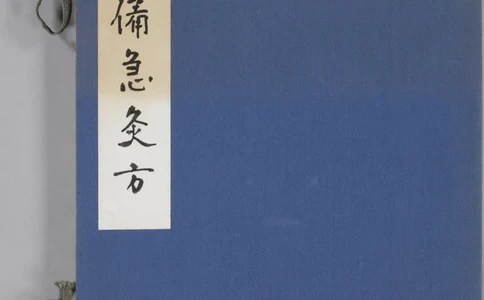 備急灸方